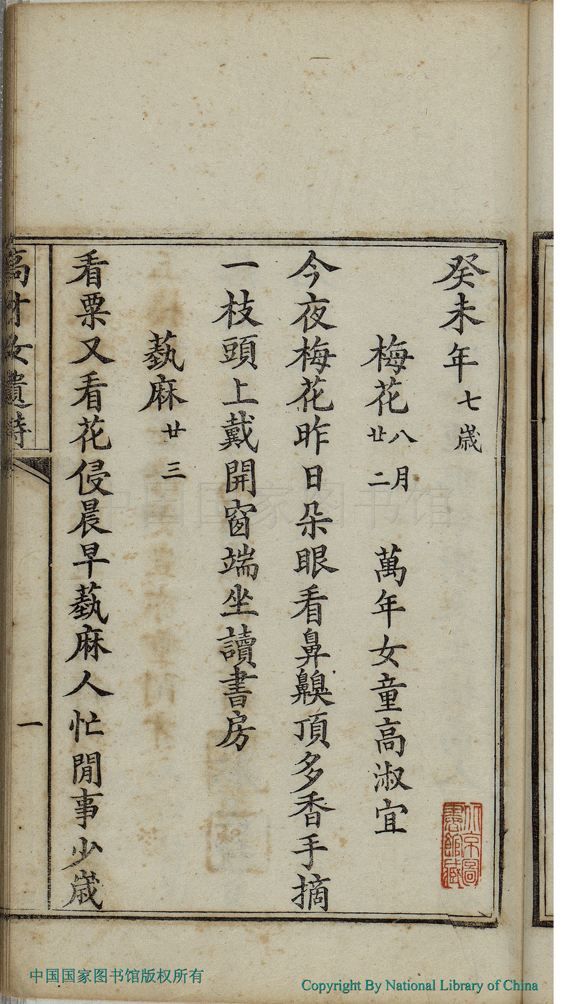 癸未年七歲
梅花八月廿二 萬年女童高淑宜
今夜梅花昨日朵眼看鼻齅頂多香手摘
一枝頭上戴開窗端坐讀書房
蓺麻廿三
看粟又看花侵晨早蓺麻人忙閒事少歲
高才女遺詩
一
北京圖書館藏
中国国家图书馆
中国国家图书馆版权所有
Copyright By National Library of China